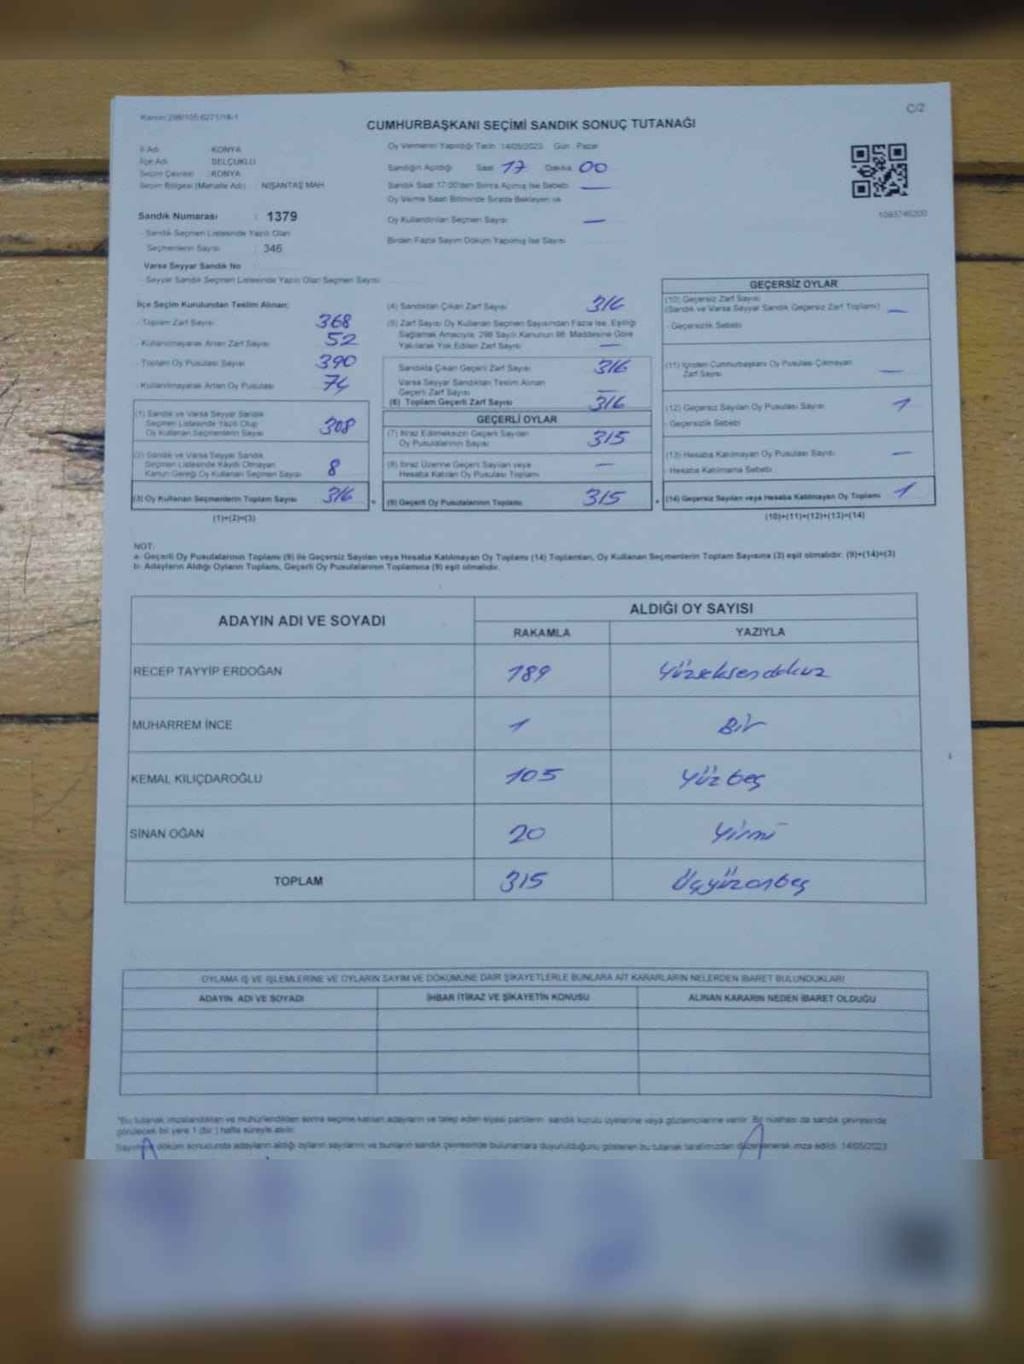 C/2
CUMHURBAŞKANI SEÇİMİ SANDIK SONUÇ TUTANAĞI
İl Adı : KONYA
İlçe Adı : SELÇUKLU
Seçim Çevresi : KONYA
Seçim Bölgesi (Mahalle Adı) : NİŞANTAŞ MAH
Sandık Numarası : 1379
Sandık Seçmen Listesinde Yazılı Olan
Seçmenlerin Sayısı : 346
Varsa Seyyar Sandık No
Seyyar Sandık Seçmen Listesinde Yazılı Olan Seçmen Sayısı
Oy Vermenin Yapıldığı Tarih : 14/05/2023 Gün : Pazar
Sandığın Açıldığı Saat 17 Dakika 00
Sandık Saat 17:00'den Sonra Açılmış İse Sebebi —
Oy Verme Saati Bitiminde Sırada Bekleyen ve
Oy Kullandırılan Seçmen Sayısı —
Birden Fazla Sayım Döküm Yapılmış İse Sayısı
İlçe Seçim Kurulundan Teslim Alınan:
Toplam Zarf Sayısı 368
Kullanılmayarak Artan Zarf Sayısı 52
Toplam Oy Pusulası Sayısı 390
Kullanılmayarak Artan Oy Pusulası 74
(1) Sandık ve Varsa Seyyar Sandık
Seçmen Listesinde Yazılı Olup
Oy Kullanan Seçmenlerin Sayısı 308
(2) Sandık ve Varsa Seyyar Sandık
Seçmen Listesinde Kaydı Olmayan
Kanun Gereği Oy Kullanan Seçmen Sayısı 8
(3) Oy Kullanan Seçmenlerin Toplam Sayısı 316
(1)+(2)=(3)
(4) Sandıktan Çıkan Zarf Sayısı 316
(5) Zarf Sayısı Oy Kullanan Seçmen Sayısından Fazla İse, Eşitliği
Sağlamak Amacıyla, 298 Sayılı Kanunun 98. Maddesine Göre
Yakılarak Yok Edilen Zarf Sayısı —
Sandıkta Çıkan Geçerli Zarf Sayısı 316
Varsa Seyyar Sandıktan Teslim Alınan
Geçerli Zarf Sayısı —
(6) Toplam Geçerli Zarf Sayısı 316
GEÇERLİ OYLAR
(7) İtiraz Edilmeksizin Geçerli Sayılan
Oy Pusulalarının Sayısı 315
(8) İtiraz Üzerine Geçerli Sayılan veya
Hesaba Katılan Oy Pusulası Toplamı —
(9) Geçerli Oy Pusulalarının Toplamı 315
GEÇERSİZ OYLAR
(10) Geçersiz Zarf Sayısı
(Sandık ve Varsa Seyyar Sandık Geçersiz Zarf Toplamı) —
Geçersizlik Sebebi
(11) İçinden Cumhurbaşkanı Oy Pusulası Çıkmayan
Zarf Sayısı —
(12) Geçersiz Sayılan Oy Pusulası Sayısı 1
Geçersizlik Sebebi
(13) Hesaba Katılmayan Oy Pusulası Sayısı —
Hesaba Katılmama Sebebi
(14) Geçersiz Sayılan veya Hesaba Katılmayan Oy Toplamı 1
(10)+(11)+(12)+(13)=(14)
NOT:
a- Geçerli Oy Pusulalarının Toplamı (9) ile Geçersiz Sayılan veya Hesaba Katılmayan Oy Toplamı (14) Toplamları, Oy Kullanan Seçmenlerin Toplam Sayısına (3) eşit olmalıdır. (9)+(14)=(3)
b- Adayların Aldığı Oyların Toplamı, Geçerli Oy Pusulalarının Toplamına (9) eşit olmalıdır.
ADAYIN ADI VE SOYADI ALDIĞI OY SAYISI
RAKAMLA YAZIYLA
RECEP TAYYİP ERDOĞAN 189 Yüzseksendokuz
MUHARREM İNCE 1 Bir
KEMAL KILIÇDAROĞLU 105 Yüzbeş
SİNAN OĞAN 20 Yirmi
TOPLAM 315 Üçyüzonbeş
OYLAMA İŞ VE İŞLEMLERİNE VE OYLARIN SAYIM VE DÖKÜMÜNE DAİR ŞİKAYETLERLE BUNLARA AİT KARARLARIN NELERDEN İBARET BULUNDUKLARI
ADAYIN ADI VE SOYADI İHBAR İTİRAZ VE ŞİKAYETİN KONUSU ALINAN KARARIN NEDEN İBARET OLDUĞU
*Bu tutanak imzalandıktan ve mühürlendikten sonra seçime katılan adayların ve talep eden siyasi partilerin sandık kurulu üyelerine veya gözlemcilerine verilir. Bir nüshası da sandık çevresinde
görülecek bir yere 1 (bir) hafta süreyle asılır.
Sayım döküm sonucunda adayların aldığı oyların sayılarını ve bunların sandık çevresinde bulunanlara duyurulduğunu gösteren bu tutanak tarafımızdan düzenlenerek imza edildi. 14/05/2023